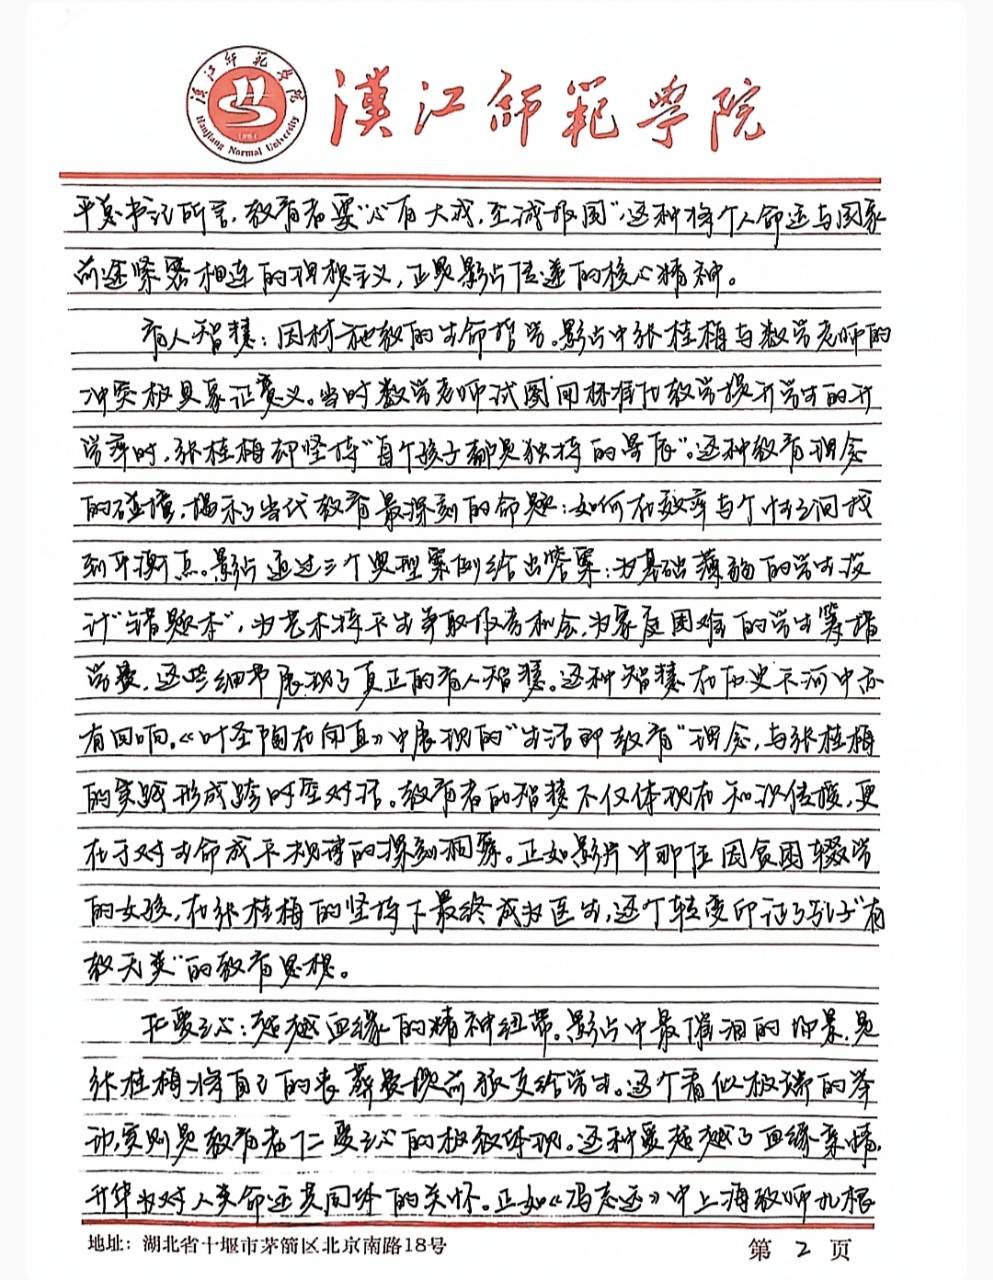 漢江師範學院
漢江師範學院
Hanjiang Normal University
平总书记所言,教育者要“心有大我,至诚报国”,这种将个人命运与国家
前途紧密相连的理想主义,正是影片传递的核心精神。
育人智慧:因材施教的生命哲学。影片中张桂梅与数学老师的
冲突极具象征意义。当时数学老师试图用标准化教学提升学生的升
学率时,张桂梅却坚持“每个孩子都是独特的星辰”。这种教育理念
的碰撞,揭示当代教育最深刻的命题:如何在效率与个性之间找
到平衡点。影片通过三个典型案例给出答案:为基础薄弱的学生设
计“错题本”,为艺术特长生争取保育机会,为家庭困难的学生筹措
学费,这些细节展现了真正的育人智慧。这种智慧在历史长河中亦
有回响。《叶圣陶在甪直》中展现的“生活即教育”理念,与张桂梅
的实践形成跨时空对话。教育者的智慧不仅体现在知识传授,更
在于对生命成长规律的深刻洞察。正如影片中那位因贫困辍学
的女孩,在张桂梅的坚持下最终成为医生,这个转变印证了孔子“有
教无类”的教育思想。
仁爱之心:超越血缘的精神纽带。影片中最催泪的场景,是
张桂梅将自己的丧葬费提前预支给学生。这个看似极端的举
动,实则是教育者仁爱之心的极致体现。这种爱超越了血缘亲情,
升华为对人类命运共同体的关怀。正如《冯志远》中上海教师扎根
地址:湖北省十堰市茅箭区北京南路18号
第 2 页